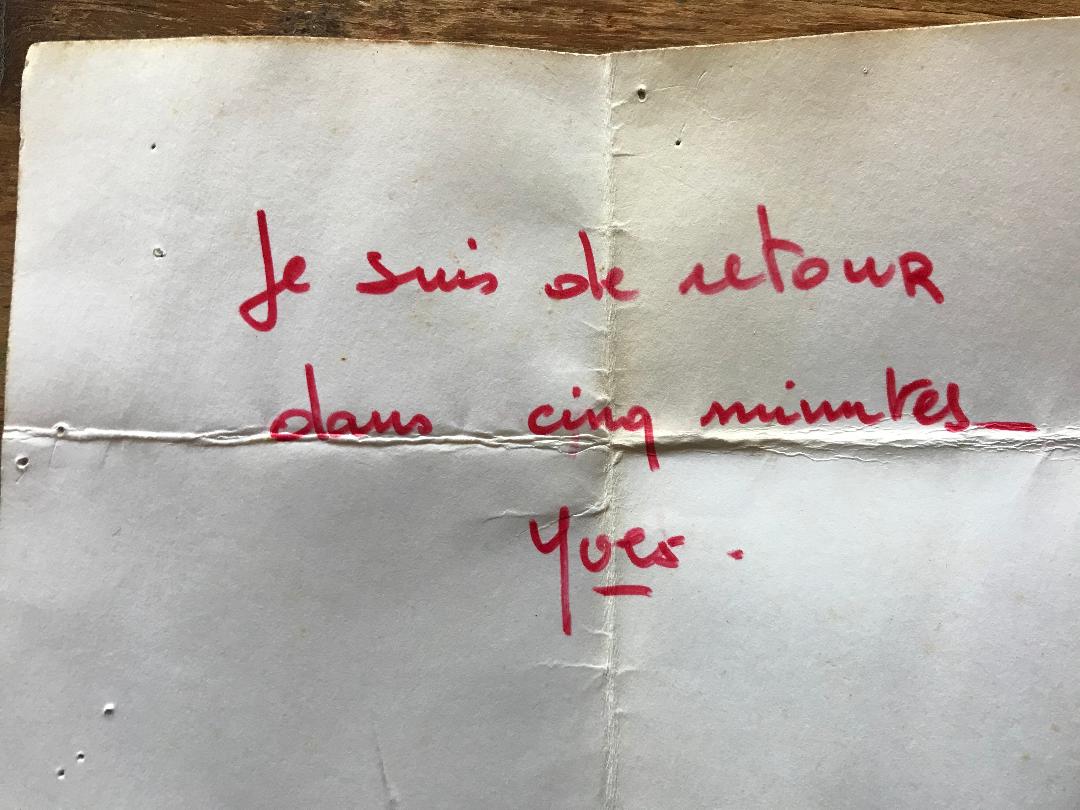 Je suis de retour
dans cinq minutes_
Yves.